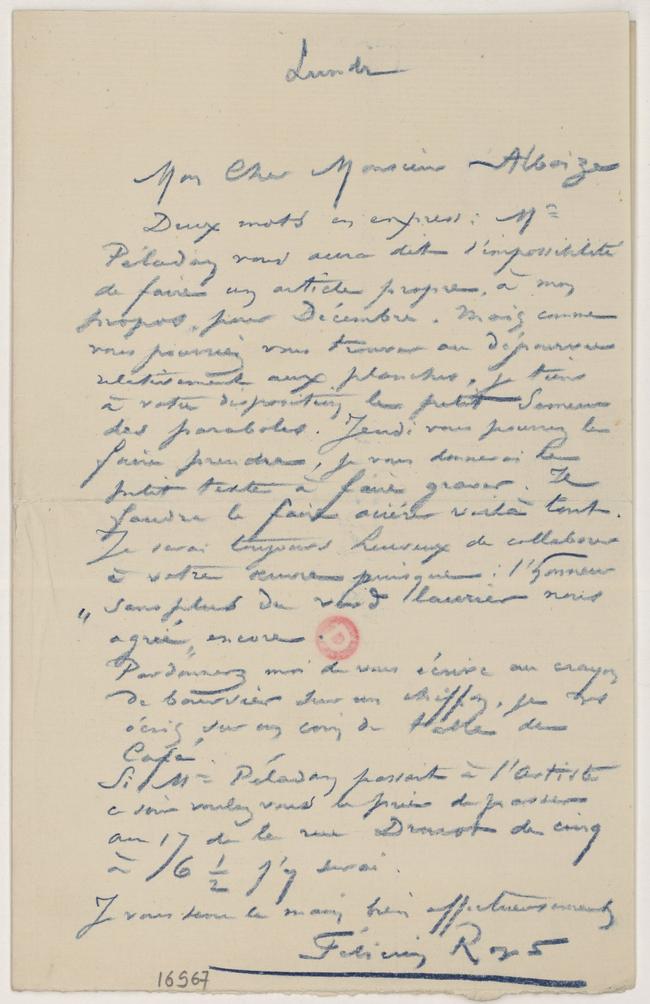 Lundi
Mon Cher Monsieur Alboize
Deux mots en express : Mr
Péladan vous aura dit l'impossibilité
de faire un article propre, à mon
propos, pour Décembre. Mais comme
vous pourriez vous trouver au dépourvu
relativement aux planches, je tiens
à votre disposition le petit Semeur
des paraboles. Jeudi vous pourrez le
faire prendre, je vous donnerai le
petit texte à faire graver. Il
faudra le faire aciérer voilà tout.
Je serai toujours heureux de collaborer
à votre œuvre puisque : l'honneur
" sans plus du verd laurier nous
agrée, encore.
Pardonnez moi de vous écrire au crayon
de boursier sur un chiffon, je vous
écris sur un coin de table de
Café.
Si Mr Péladan passait à l'Artiste
ce soir voulez vous le prier de passer
au 17 de la rue Drouot de cinq
à 6 1/2 j'y serai.
Je vous serre la main bien affectueusement
Félicien Rops
16967